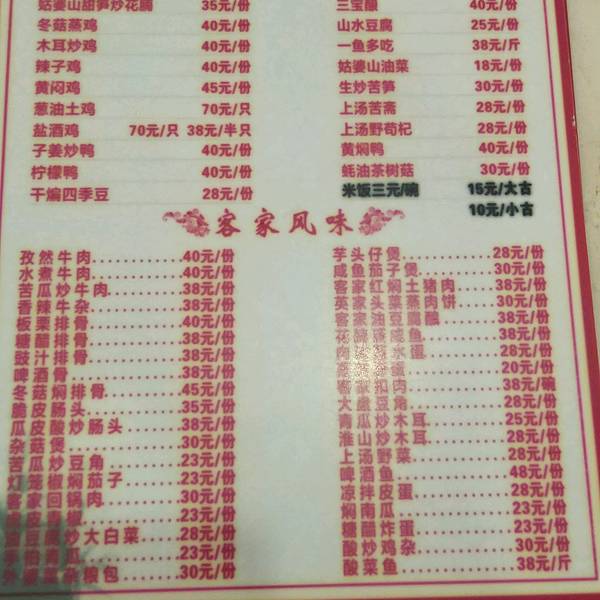 姑婆山甜笋炒花腩 35元/份
冬菇蒸鸡 40元/份
木耳炒鸡 40元/份
辣子鸡 40元/份
黄闷鸡 45元/份
葱油土鸡 70元/只
盐酒鸡 70元/只 38元/半只
子姜炒鸭 40元/份
柠檬鸭 40元/份
干煸四季豆 28元/份
三宝酿 40元/份
山水豆腐 25元/份
一鱼多吃 38元/斤
姑婆山油菜 18元/份
生炒苦笋 30元/份
上汤苦斋 28元/份
上汤野荀杞 28元/份
黄焖鸭 40元/份
蚝油茶树菇 30元/份
米饭三元/碗 15元/大古
10元/小古
客家风味
孜然牛肉 40元/份
水煮牛肉 40元/份
苦瓜炒牛肉 38元/份
香辣牛杂 38元/份
板栗排骨 40元/份
糖醋排骨 38元/份
豉汁排骨 38元/份
啤酒骨 38元/份
冬菇焖排骨 45元/份
脆皮肠头 35元/份
瓜皮酸炒肠头 38元/份
杂菇煲 30元/份
苦瓜炒豆角 23元/份
灯笼椒焖茄子 23元/份
客家回锅肉 30元/份
23元/份
炒大白菜 28元/份
23元/份
粮包 30元/份
芋头仔煲 28元/份
咸鱼茄子煲 30元/份
客家红焖土猪肉 38元/份
英家头菜蒸肉饼 30元/份
客家油豆腐酿 38元/份
鱼 38元/份
水蛋 28元/份
20元/份
扣肉 38元/碗
豆角 28元/份
青瓜炒木耳 25元/份
淮山炒木耳 28元/份
上汤野菜 28元/份
啤酒鱼 48元/份
凉拌皮蛋 28元/份
焖南瓜 23元/份
糖醋炸蛋 23元/份
酸炒鸡杂 30元/份
酸菜鱼 38元/斤